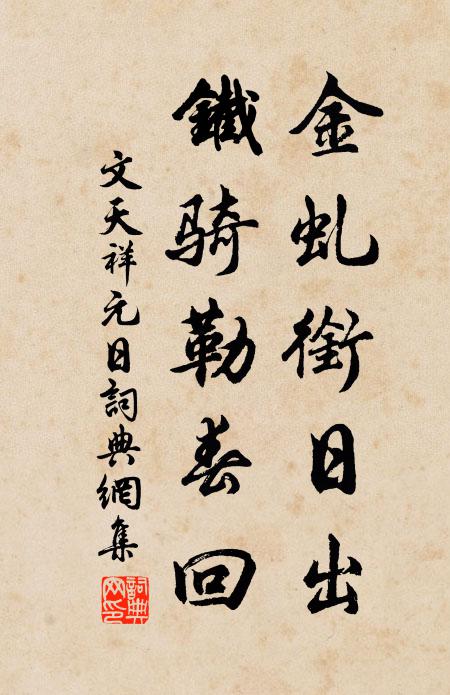 金虬銜日出
鐵騎勒春回
文天祥元日詞典網集
詞典網印